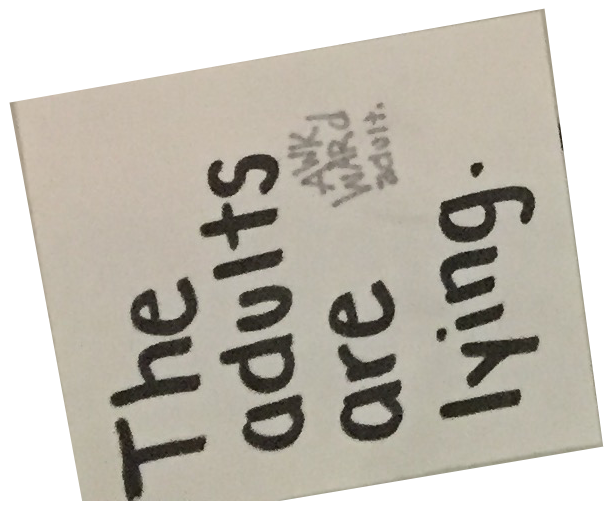 The
adults
are
lying.
AWK
WARd
adult.